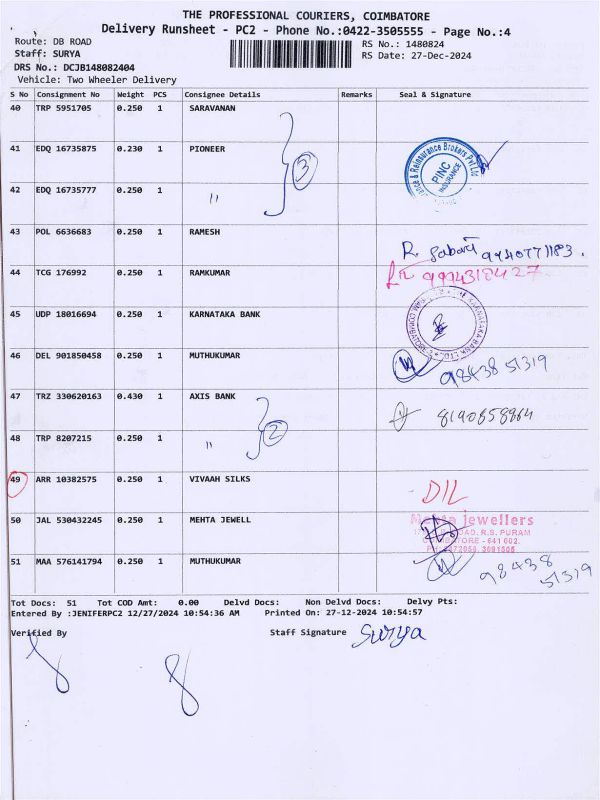 THE PROFESSIONAL COURIERS, COIMBATORE
Delivery Runsheet - PC2 - Phone No.:0422-3505555 - Page No.:4
Route: DB ROAD
RS No.: 1480824
Staff: SURYA
RS Date: 27-Dec-2024
DRS No.: DCJB148082404
Vehicle: Two Wheeler Delivery
S No Consignment No Weight PCS Consignee Details Remarks Seal & Signature
40 TRP 5951705 0.250 1 SARAVANAN
41 EDQ 16735875 0.230 1 PIONEER
3
PINC INSURANCE
42 EDQ 16735777 0.250 1 "
43 POL 6636683 0.250 1 RAMESH
44 TCG 176992 0.250 1 RAMKUMAR
9994318427
45 UDP 18016694 0.250 1 KARNATAKA BANK
46 DEL 901850458 0.250 1 MUTHUKUMAR
98438 51319
47 TRZ 330620163 0.430 1 AXIS BANK
2
48 TRP 8207215 0.250 1 "
49 ARR 10382575 0.250 1 VIVAAH SILKS
D/L
50 JAL 530432245 0.250 1 MEHTA JEWELL
Mehta jewellers
R.S. PURAM
51 MAA 576141794 0.250 1 MUTHUKUMAR
98438 51319
Tot Docs: 51 Tot COD Amt: 0.00 Delvd Docs: Non Delvd Docs: Delvy Pts:
Entered By :JENIFERPC2 12/27/2024 10:54:36 AM Printed On: 27-12-2024 10:54:57
Verified By Staff Signature Surya